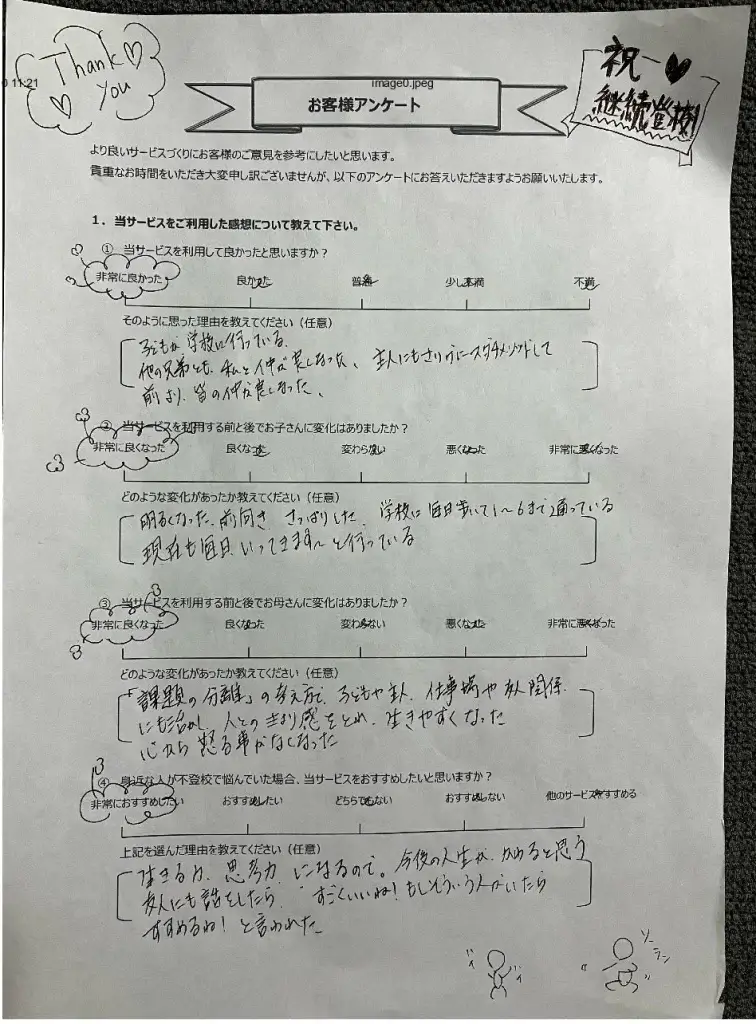 Thank you
0 11:21
image0.jpeg
お客様アンケート
祝一
継続登校!
より良いサービスづくりにお客様のご意見を参考にしたいと思います。
貴重なお時間をいただき大変申し訳ございませんが、以下のアンケートにお答えいただきますようお願いいたします。
1．当サービスをご利用した感想について教えて下さい。
① 当サービスを利用して良かったと思いますか？
非常に良かった 良かった 普通 少し不満 不満
そのように思った理由を教えてください（任意）
子どもが学校に行っている、
他の兄弟とも、私と仲が良くなった、主人にもさりげにスダチメソッドして
前より、皆の仲が良くなった、
② 当サービスを利用する前と後でお子さんに変化はありましたか？
非常に良くなった 良くなった 変わらない 悪くなった 非常に悪くなった
どのような変化があったか教えてください（任意）
明るくなった、前向き、さっぱりした、学校に毎日歩いて1〜6まで通っている
現在も毎日、いってきます〜と行っている
③ 当サービスを利用する前と後でお母さんに変化はありましたか？
非常に良くなった 良くなった 変わらない 悪くなった 非常に悪くなった
どのような変化があったか教えてください（任意）
「課題の分離」の考え方で、子どもや主人、仕事場や友人関係
にも活かし、人とのきより感をとれ、生きやすくなった
心から怒る事がなくなった
④ 身近な人が不登校で悩んでいた場合、当サービスをおすすめしたいと思いますか？
非常におすすめしたい おすすめしたい どちらでもない おすすめしない 他のサービスをすすめる
上記を選んだ理由を教えてください（任意）
生きる力、思考力になるので。今後の人生が、かわると思う
友人にも話をしたら、すごくいいね！もしそういう人がいたら
すすめるね！と言われた
ソー
ラン